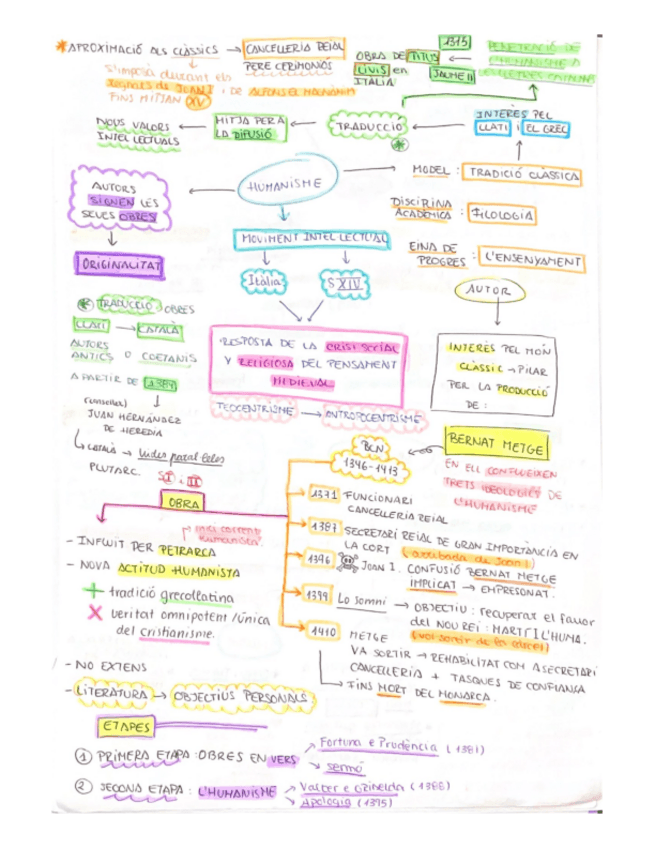 * APROXIMACIÓ ALS CLÀSSICS → CANCELLERIA REIAL
PERE CERIMONIÓS
S'imposa durant els
regnats de JOAN I i DE ALFONS EL MAGNÀNIM
FINS MITJAN XV
1315
OBRA DE TITUS
LIVIS en
ITÀLIA
JAUME II
PENETRACIÓ DE
L'HUMANISME A
LES LLETRES CATALANES
NOUS VALORS
INTEL·LECTUALS
MITJÀ PER A
LA DIFUSIÓ
TRADUCCIÓ
*
INTERÈS PEL
LLATÍ i EL GREC
MODEL : TRADICIÓ CLÀSSICA
AUTORS
SIGNEN LES
SEUES OBRES
HUMANISME
DISCIPLINA
ACADÈMICA : FILOLOGIA
ORIGINALITAT
MOVIMENT INTEL·LECTUAL
Itàlia
S XIV
EINA DE
PROGRÉS : L'ENSENYAMENT
AUTOR
* TRADUCCIÓ OBRES
LLATÍ → CATALÀ
AUTORS
ANTICS O COETANIS
A PARTIR DE 1387
(conseller) ↓
JUAN HERNÁNDEZ
DE HEREDIA
CATALÀ → Vides paral·leles
PLUTARC.
RESPOSTA DE LA CRISI SOCIAL
Y RELIGIOSA DEL PENSAMENT
MEDIEVAL
TEOCENTRISME → ANTROPOCENTRISME
INTERÈS PEL MÓN
CLÀSSIC → PILAR
PER LA PRODUCCIÓ
DE :
BERNAT METGE
EN ELL CONFLUEIXEN
TRETS IDEOLÒGICS DE
L'HUMANISME
BCN
1346-1413
OBRA
- INFLUIT PER PETRARCA
- NOVA ACTITUD HUMANISTA
+ tradició grecollatina
X veritat omnipotent / única
del cristianisme.
- NO EXTENS
- LITERATURA → OBJECTIUS PERSONALS
1371 FUNCIONARI
CANCELLERIA REIAL
1387 SECRETARI REIAL DE GRAN IMPORTÀNCIA EN
LA CORT (arribada de Joan I)
1396 JOAN I. CONFUSIÓ BERNAT METGE
IMPLICAT → EMPRESONAT.
1399 Lo somni → OBJECTIU : recuperar el favor
del NOU REI : MARTÍ I L'HUMÀ.
(vol sortir de la càrcel)
1410 METGE
VA SORTIR → REHABILITAT COM A SECRETARI
CANCELLERIA + TASQUES DE CONFIANÇA
→ FINS MORT DEL MONARCA.
ETAPES
1 PRIMERA ETAPA : OBRES EN VERS
→ Fortuna e Prudència (1381)
→ sermó
2 SEGONA ETAPA : L'HUMANISME
→ Valter e Griselda (1388)
→ Apologia (1395)